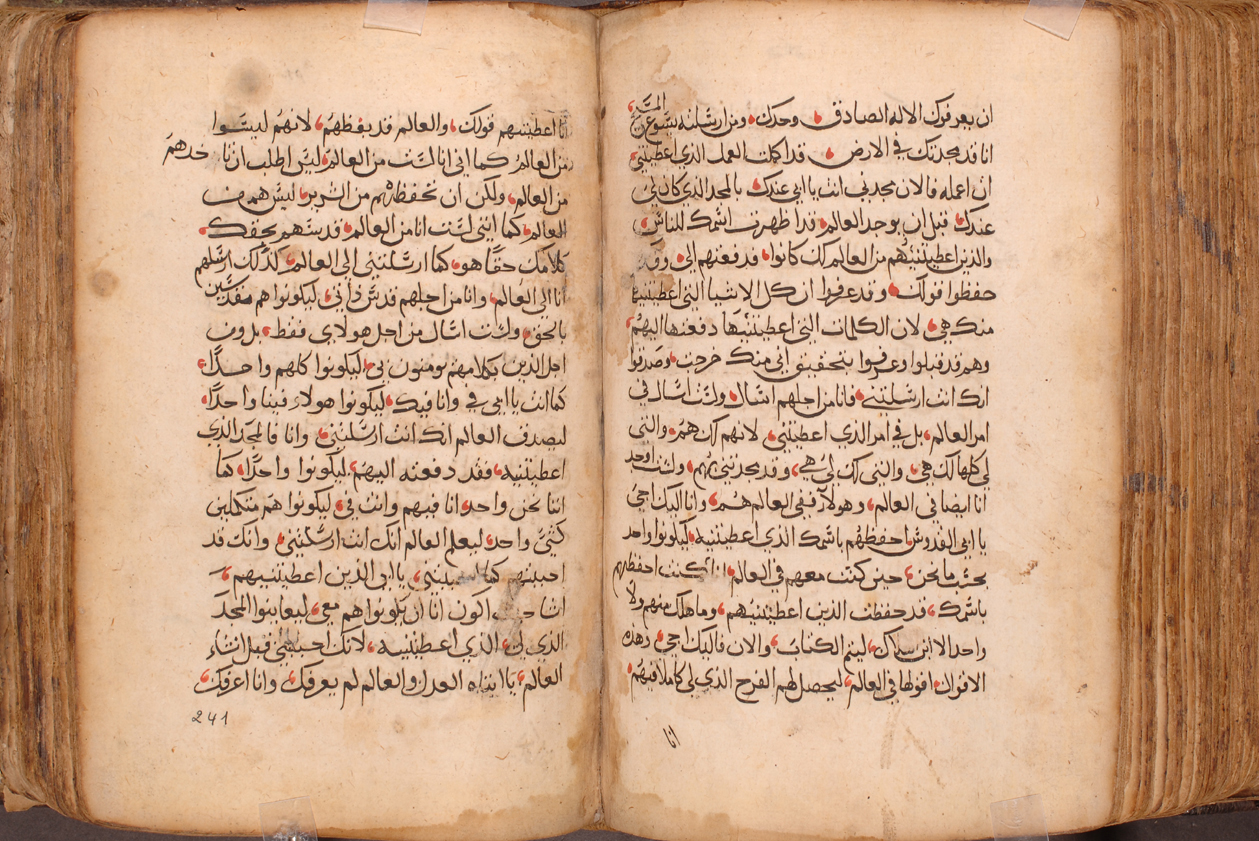 ان يعرفوك الاله الصادق وحدك ومن ارسلته يسوع المسيح
انا قد مجدتك في الارض قد اكملت العمل الذي اعطيتني
ان اعمله فالان مجدني انت يا ابي عندك بالمجد الذي كان لي
عندك قبل ان يوجد العالم قد اظهرت اسمك للناس
والذين اعطيتنيهم من العالم لك كانوا قد دفعتهم الي وقد
حفظوا قولك وقد عرفوا ان كل الاشيا التي اعطيتنيها
منك هي لان الكلمات التي اعطيتنيها دفعتها اليهم
وهم قد قبلوا وعرفوا بتحقيق اني منك خرجت وصدقوا
انك انت ارسلتني فانا من اجلهم اسال ولست اسال في
امر العالم بل في امر الذي اعطيتني لانهم لك هم والتي
لي كلها لك هي والتي لك لي هي وقد مجدتني بهم ولست اوجد
انا ايضا في العالم وهولاء ففي العالم هم وانا اليك اجي
يا ابي القدوس احفظهم باسمك الذي اعطيتنيه ليكونوا واحد
بحسب ما نحن حين كنت معهم في العالم انا كنت احفظهم
باسمك قد حفظت الذين اعطيتنيهم وما هلك منهم ولا
واحد الا ابن الهلاك ليتم الكتاب والان فاليك اجي وهذه
الاقوال اقولها في العالم ليحصل لهم الفرح الذي لي كاملا فيهم
انا
انا اعطيتهم قولك والعالم قد بغضهم لانهم ليسوا
من العالم كما اني انا لست من العالم ليس اطلب ان تاخدهم
من العالم ولكن ان تحفظهم من الشرير ليس هم من
العالم كما انني لست انا من العالم قدسهم بحقك
كلامك حقا هو كما ارسلتني الي العالم كذلك ارسلهم
انا الي العالم وانا من اجلهم قدس ذاتي ليكونوا هم مقدسين
بالحق ولست اسال من اجل هولاي فقط بل ومن
اجل الذين بكلامهم يومنون بي ليكونوا كلهم واحدا
كما انت يا ابي في وانا فيك ليكونوا هولاء فينا واحدا
ليصدق العالم انك انت ارسلتني وانا فالمجد الذي
اعطيتنيه فقد دفعته اليهم ليكونوا واحدا كما
اننا نحن واحد انا فيهم وانت في ليكونوا هم متكملين
كشي واحد ليعلم العالم انك انت ارسلتني وانك قد
احببتهم كما احببتني يا ابي الذين اعطيتنيهم
اشا حيث اكون انا ان يكونوا هم معي ليعاينوا المجد
الذي لي الذي اعطيتنيه لانك احببتني قبل انشاء
العالم يا ابتاه العدل والعالم لم يعرفك وانا اعرفك
241